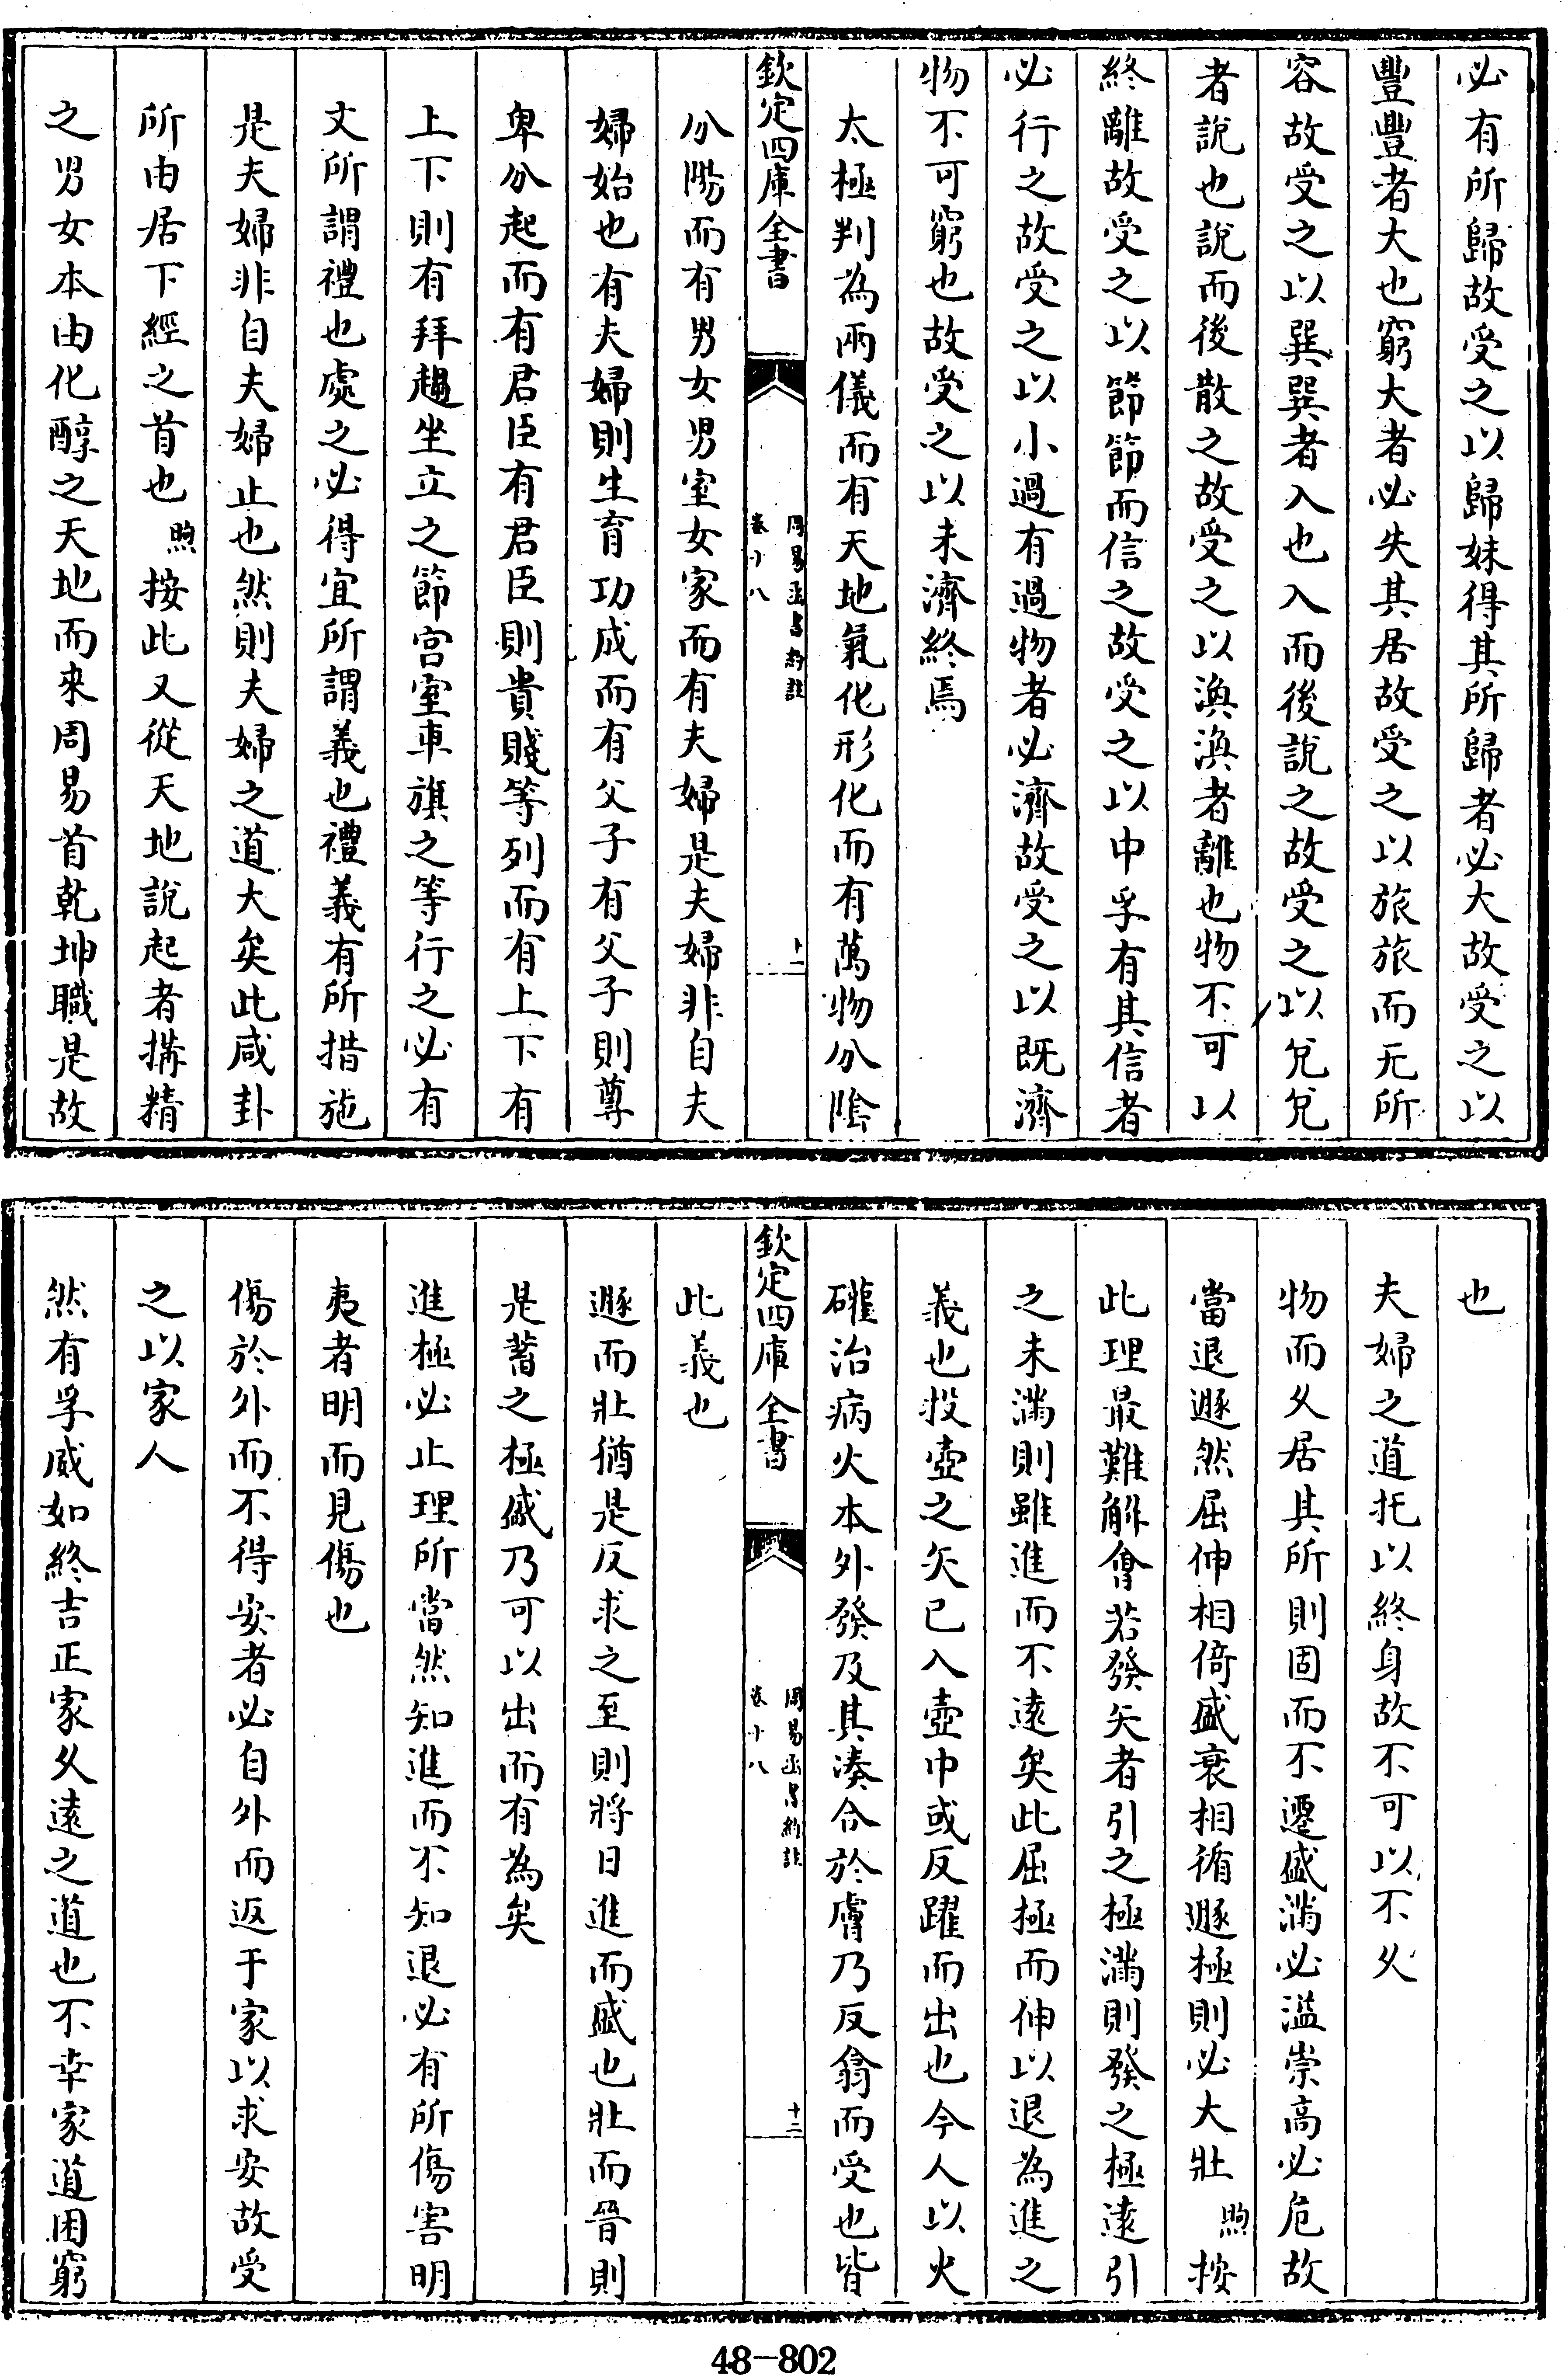 必有所歸故受之以歸妹得其所歸者必大故受之以
豐豐者大也窮大者必失其居故受之以旅旅而无所
容故受之以巽巽者入也入而後說之故受之以兌兌
者說也說而後散之故受之以渙渙者離也物不可以
終離故受之以節節而信之故受之以中孚有其信者
必行之故受之以小過有過物者必濟故受之以既濟
物不可窮也故受之以未濟終焉
太極判為兩儀而有天地氣化形化而有萬物分陰
欽定四庫全書
周易函書約註
卷十八
十一
分陽而有男女男室女家而有夫婦是夫婦非自夫
婦始也有夫婦則生育功成而有父子有父子則尊
卑分起而有君臣有君臣則貴賤等列而有上下有
上下則有拜趨坐立之節宮室車旗之等行之必有
文所謂禮也處之必得宜所謂義也禮義有所措施
是夫婦非自夫婦止也然則夫婦之道大矣此咸卦
所由居下經之首也煦按此又從天地說起者搆精
之男女本由化醇之天地而來周易首乾坤職是故
也
夫婦之道托以終身故不可以不久
物而久居其所則固而不遷盛滿必溢崇高必危故
當退遯然屈伸相倚盛衰相循遯極則必大壯煦按
此理最難解會若發矢者引之極滿則發之極遠引
之未滿則雖進而不遠矣此屈極而伸以退為進之
義也投壺之矢已入壺中或反躍而出也今人以火
礶治病火本外發及其湊合於膚乃反翕而受也皆
欽定四庫全書
周易函書約註
卷十八
十二
此義也
遯而壯猶是反求之至則將日進而盛也壯而晉則
是蓄之極盛乃可以出而有為矣
進極必止理所當然知進而不知退必有所傷害明
夷者明而見傷也
傷於外而不得安者必自外而返于家以求安故受
之以家人
然有孚威如終吉正家久遠之道也不幸家道困窮
48-802